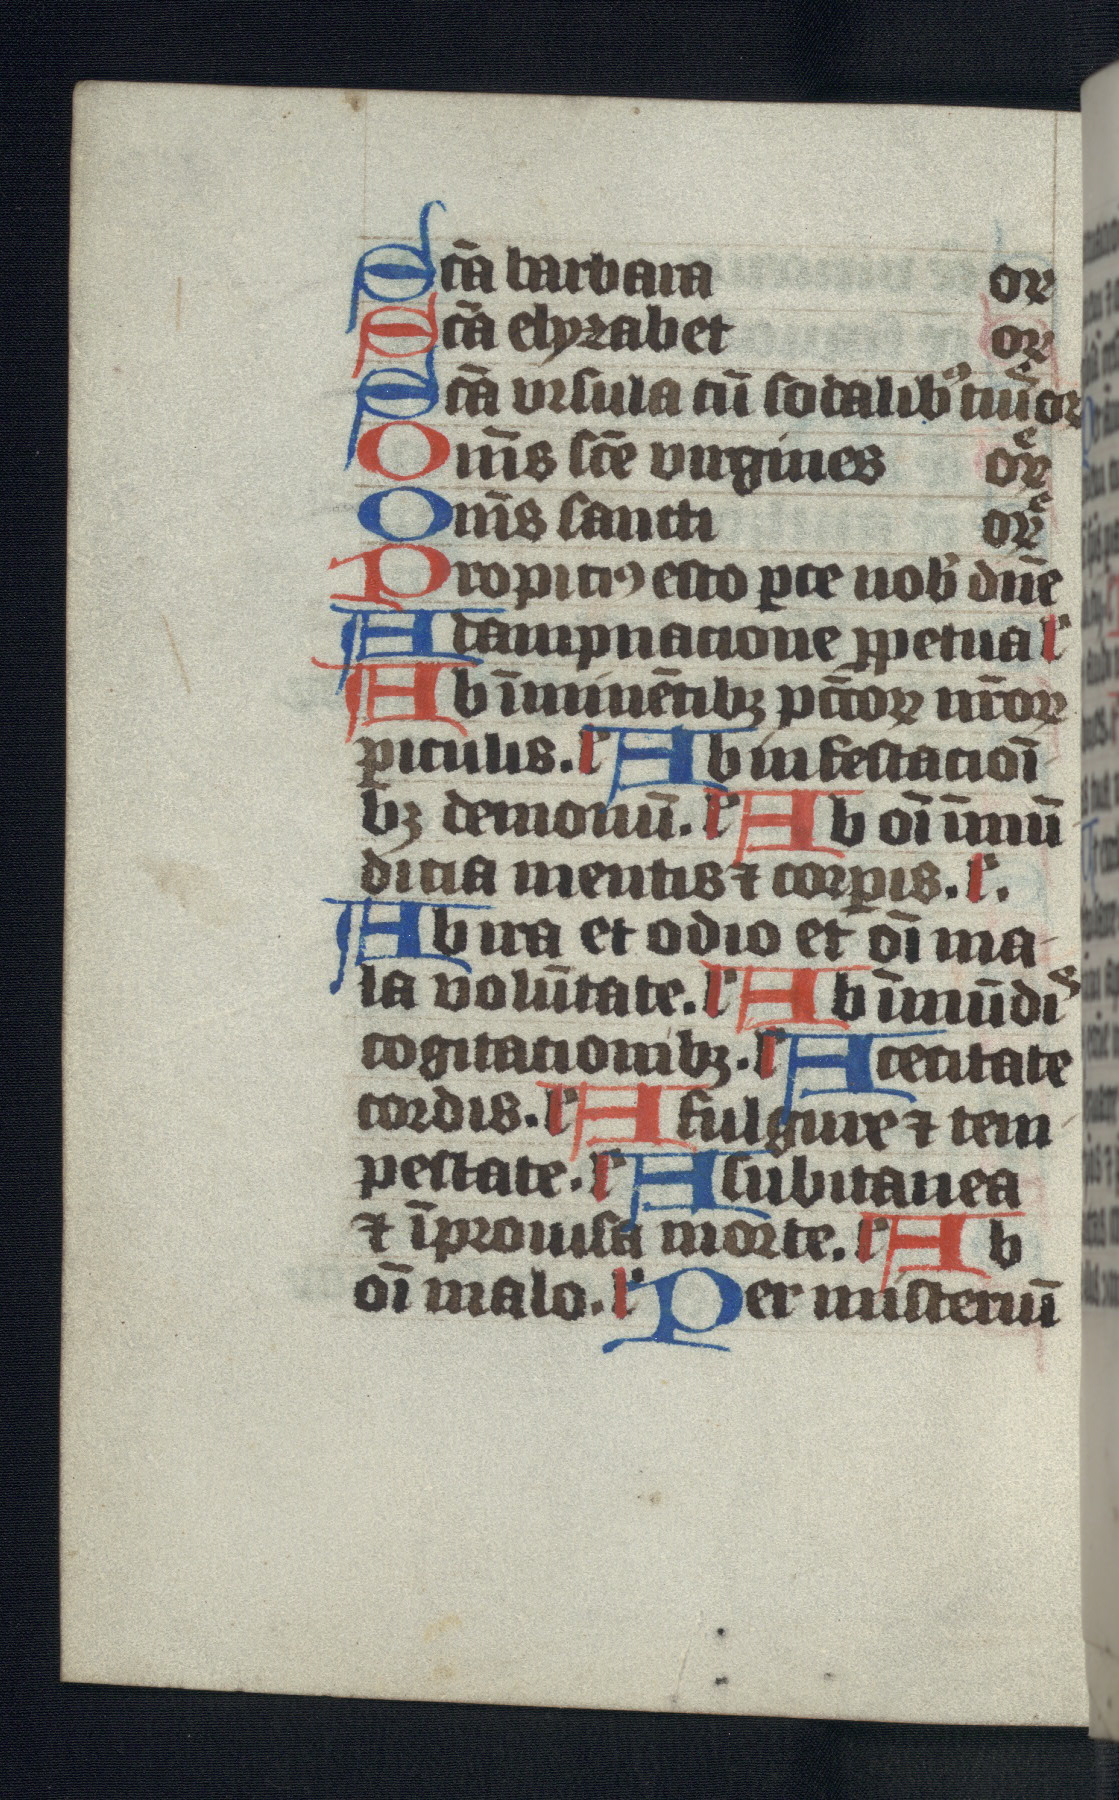 Scā barbara or
Scā elyzabet or
Scā vrsula cū sodalibꝰ tuis orᵉ
Om̄s scē virgines orᵉ
Om̄s sancti orᵉ
Propiciꝰ esto ꝑce nob̄ dn̄e
A dampnacione ꝑpetua lᵃ
Ab īminētibꝫ pctōꝝ nr̄oꝝ
ꝑiculis. lᵃ Ab infestacioī
bꝫ demonū. lᵃ Ab oī īmū
dicia mentis ⁊ corꝑis. lᵃ.
Ab ira et odio et oī ma
la volūtate. lᵃ Ab īmūdiˢ
cogitacionibꝫ. lᵃ A cecitate
cordis. lᵃ A fulgure ⁊ tem
pestate. lᵃ A subitanea
⁊ īprouisa morte. lᵃ Ab
oī malo. lᵃ Per misteriū